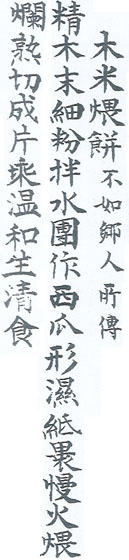 木米煨餅 不如鄉人所傳
精木末細粉拌水團作西瓜形濕紙裹慢火煨
爛熟切成片乘温和生清食